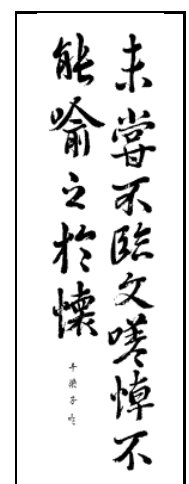 未嘗不臨文嗟悼不
能喻之於懷